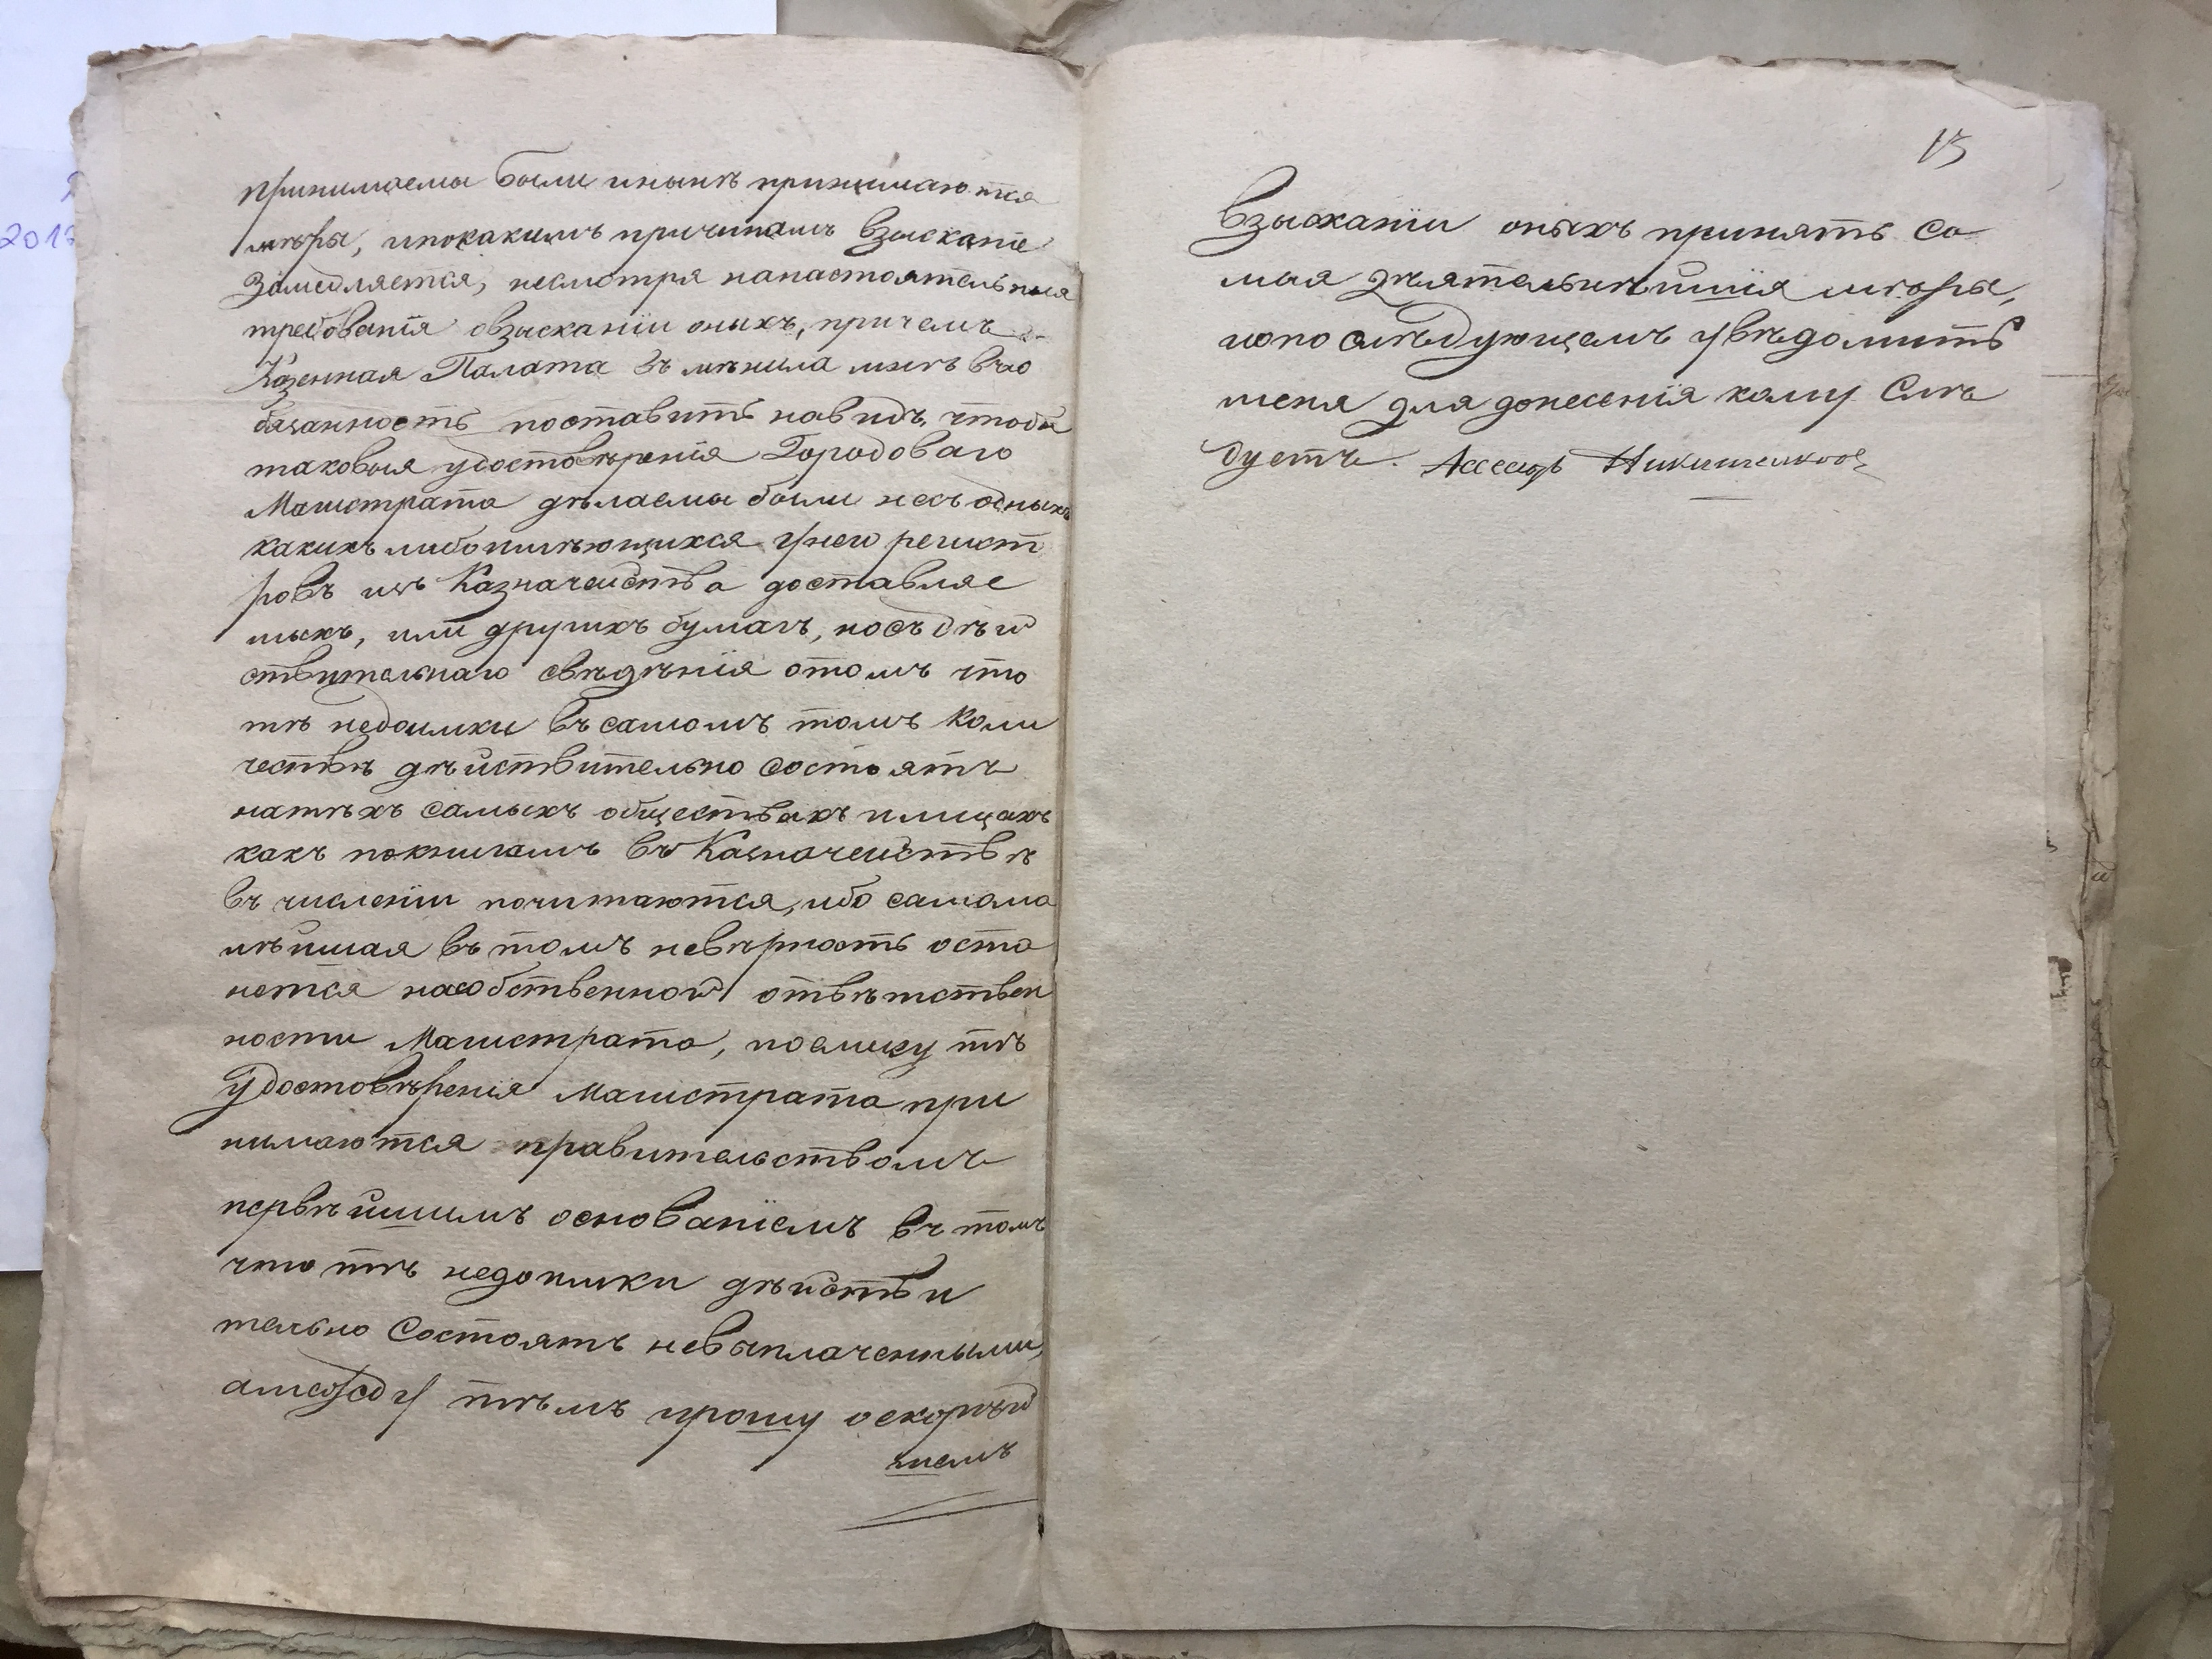 принимаемы были инынѣ принимаются
мѣры, ипокакимъ причинамъ взыскание
замедляется, несмотря нанастоятельныя
требования овзысканіи оныхъ, причемъ
Казенная Палата вмѣнила мнѣ вьо
бязанность поставить навидъ, чтобы
таковыя удостовѣренія Городоваго
Магистрата дѣлаемы были несъ одныхъ
какихъ либо имѣющихся унего регист
ровъ изъ Казначейства доставляе
мыхъ, или другихъ бумагъ, носъ дѣй
ствительнаго свѣдѣнія отомъ что
тѣ недоимки въ самомъ томъ коли
чествѣ дѣйствительно состоятъ
натѣхъ самыхъ обществахъ илицахъ
какъ покнигамъ въ Казначействѣ
въ численіи почитаются, ибо самома
лѣйшая въ томъ невѣрность оста
нется насобственной отвѣтствен
ности Магистрата, поелику тѣ
удостовѣренія Магистрата при
нимаются правительствомъ
первѣйшимъ основаніемъ въ томъ
что тѣ недоимки дѣйстви
тельно состоятъ невыплаченными,
амежду тѣмъ прошу оскорѣй
шемъ
13
взысканіи оныхъ принять са
мыя дѣятельнѣйшія мѣры,
ипослѣдующемъ увѣдомить
меня для донесенія кому слѣ
дуетъ. Асесоръ
2017